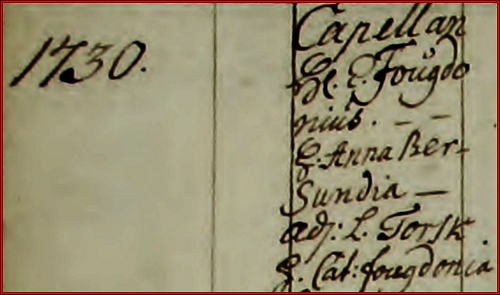 1730.
Capellan
H. E. Fougdo
nius. – –
H. Anna Ber-
Sundia –
adj: L. Torsk
H. Cat: fougdonia.